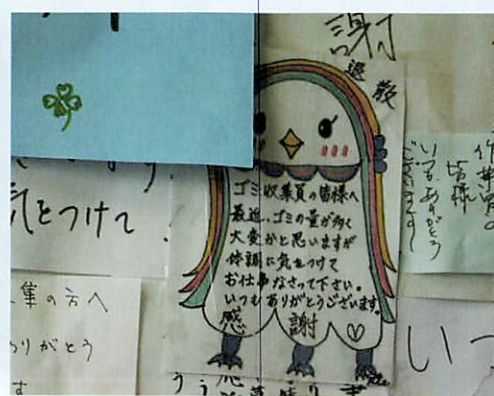 謝
退散
ゴミ収集員の皆様へ
最近、ゴミの量が多く
大変かと思いますが
体調に気をつけて
お仕事なさって下さい。
いつもありがとうございます。
感謝
気をつけて
集の方へ
りがとう
す
皆様
いつもありがとう
ございます
いつ